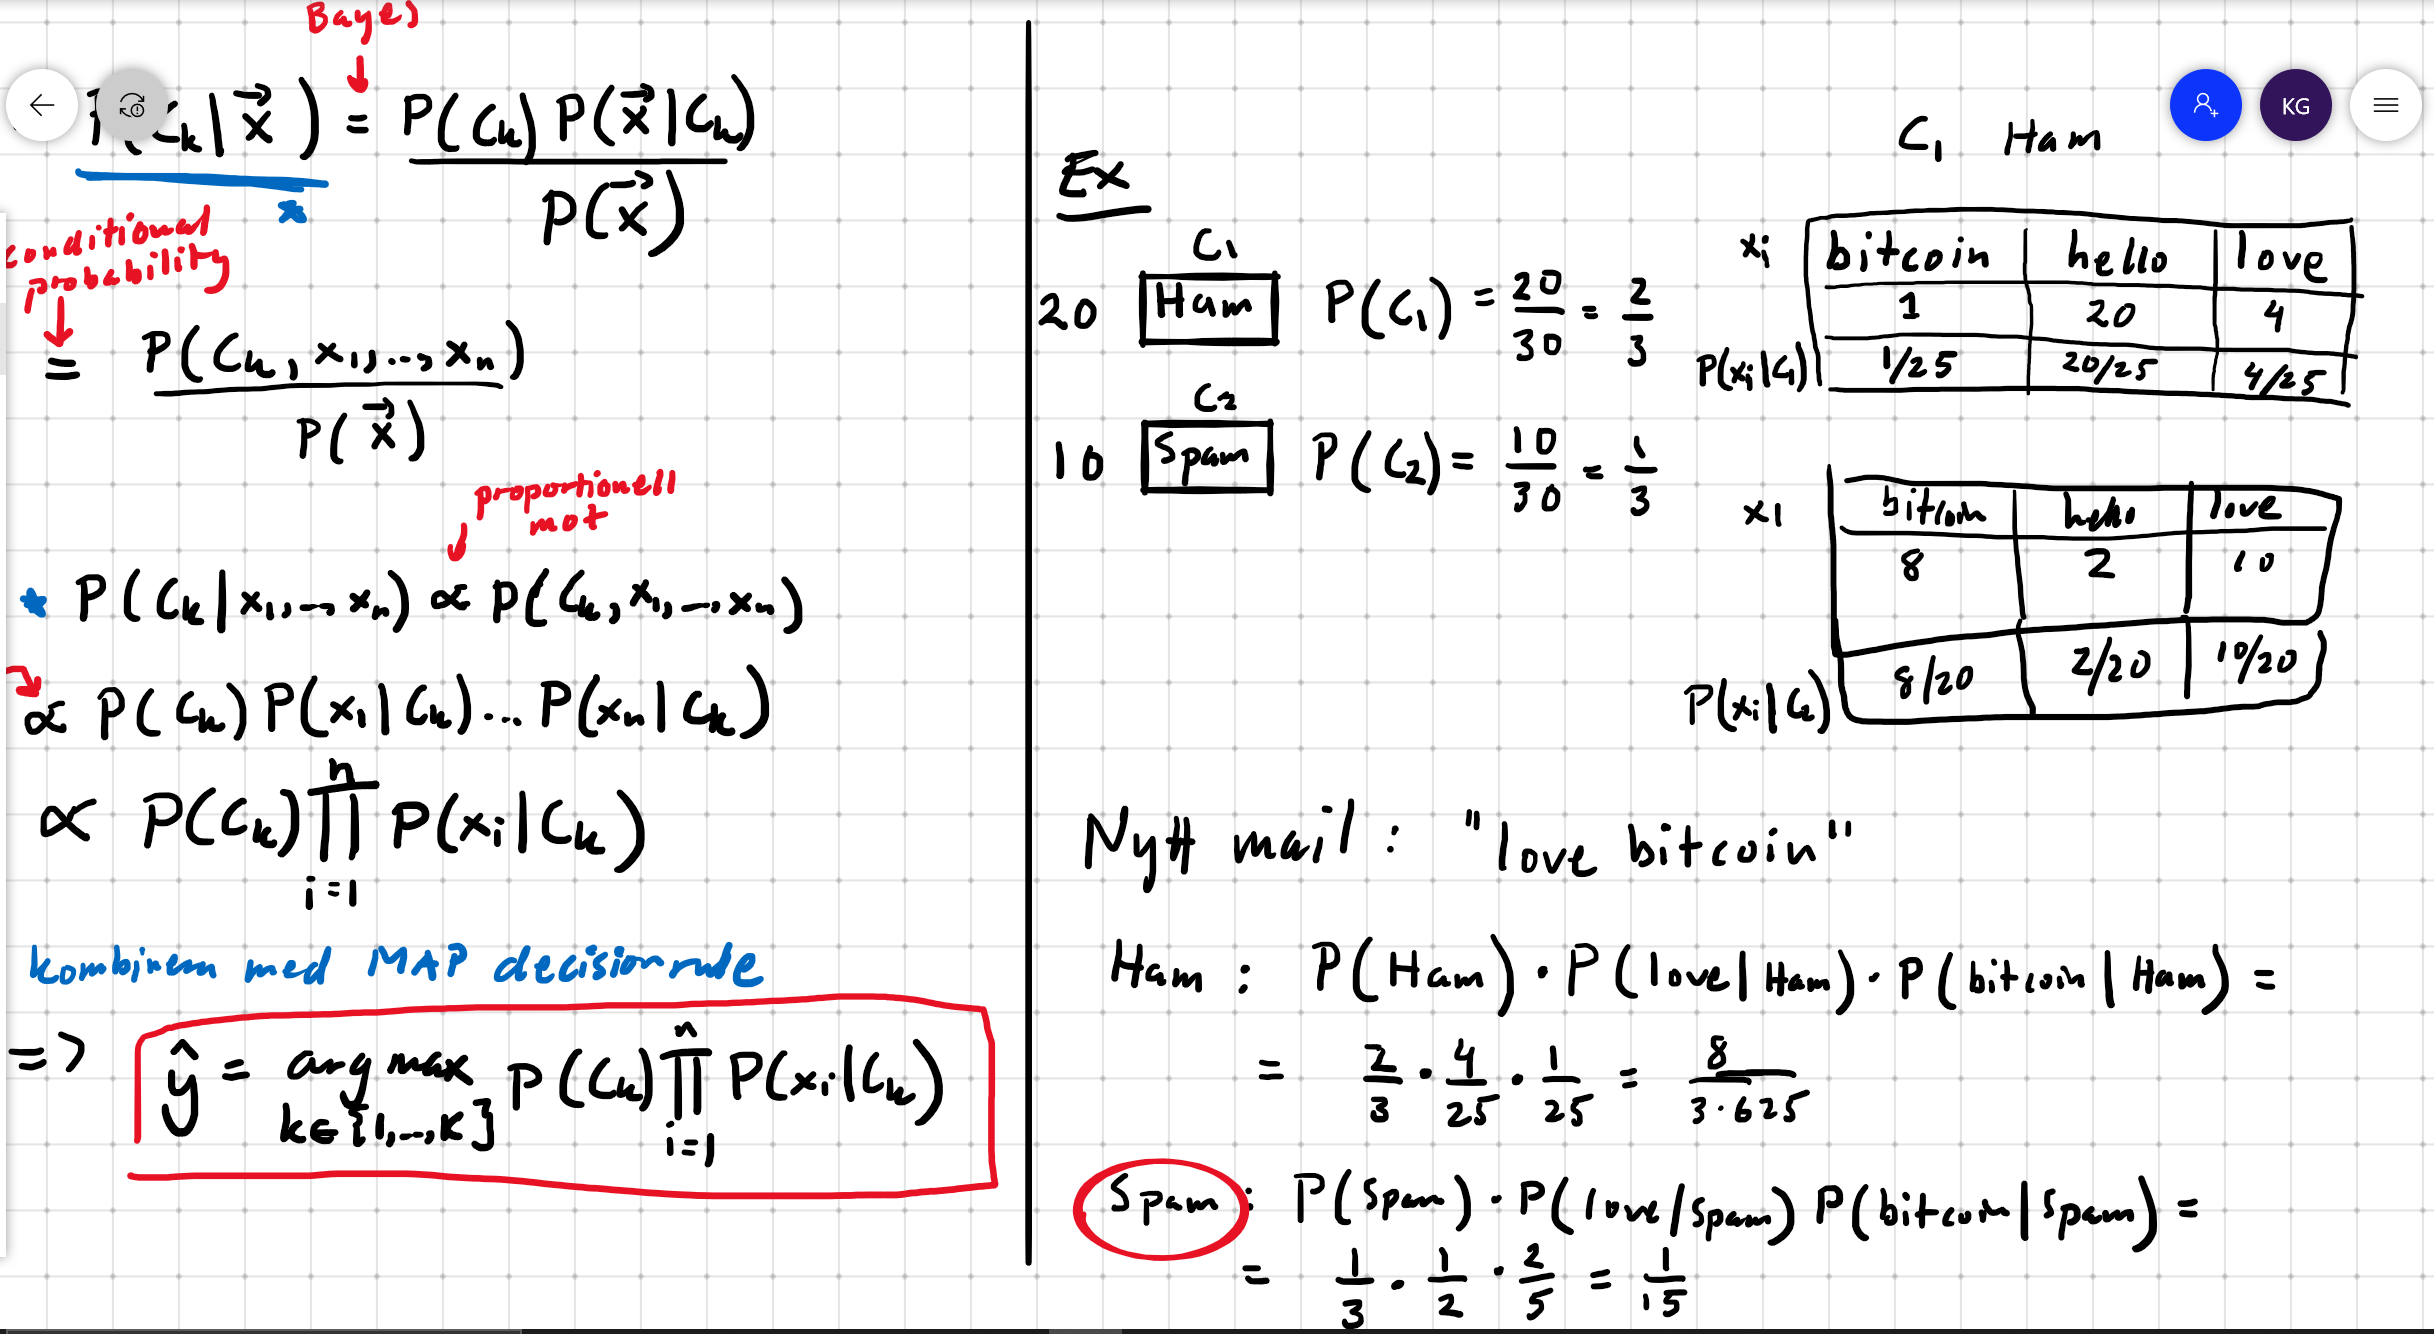 Bayes
P(Ck|x⃗) = P(Ck) P(x⃗|Ck)
P(x⃗)
conditional
probability
= P(Ck, x1, .., xn)
P(x⃗)
proportionell
mot
* P(Ck|x1, .., xn) ∝ P(Ck, x1, .., xn)
∝ P(Ck) P(x1|Ck) ... P(xn|Ck)
∝ P(Ck) ∏ P(xi|Ck)
n
i=1
kombinera med MAP decision rule
=> ŷ = arg max P(Ck) ∏ P(xi|Ck)
n
k∈{1,..,K}
i=1
Ex
C1
20 Ham P(C1) = 20/30 = 2/3
C2
10 Spam P(C2) = 10/30 = 1/3
KG
C1 Ham
xi bitcoin hello love
1 20 4
P(xi|C1) 1/25 20/25 4/25
x1 bitcoin hello love
8 2 10
P(xi|C2) 8/20 2/20 10/20
Nytt mail: "love bitcoin"
Ham: P(Ham) · P(love|Ham) · P(bitcoin|Ham) =
= 2/3 · 4/25 · 1/25 = 8/3·625
Spam: P(Spam) · P(love/Spam) P(bitcoin|Spam) =
= 1/3 · 1/2 · 2/5 = 1/15